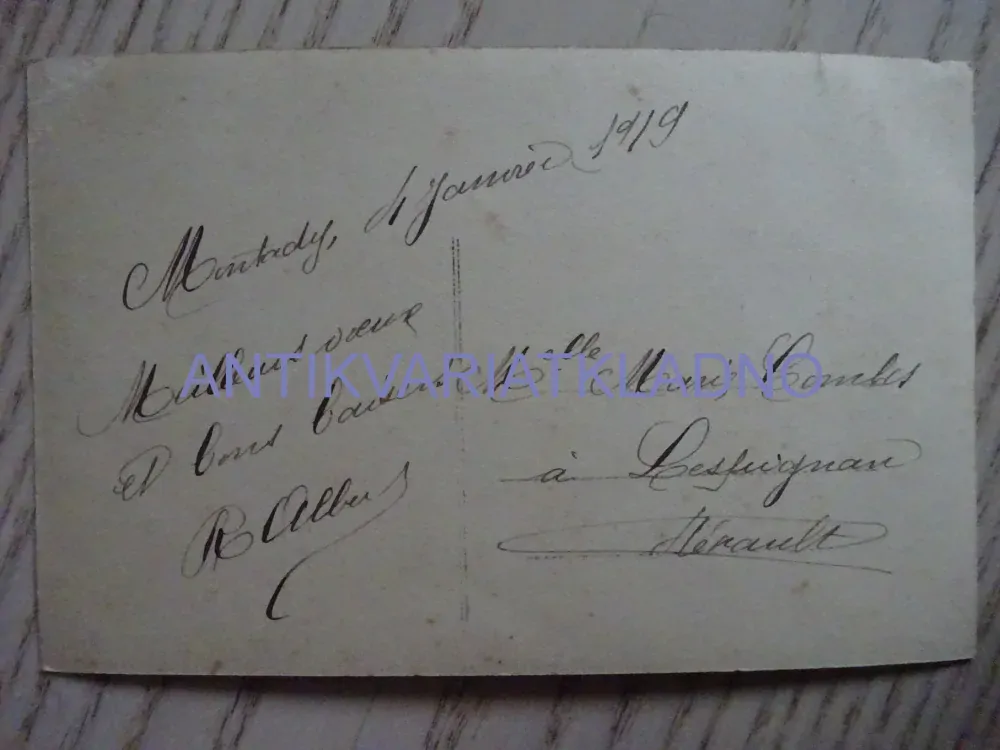 Montady, 4 Janvier 1919
Meilleurs vœux
Et bons baisers
R Albert
Melle Marie Combes
à Lespignan
Hérault
ANTIKVARIATKLADNO